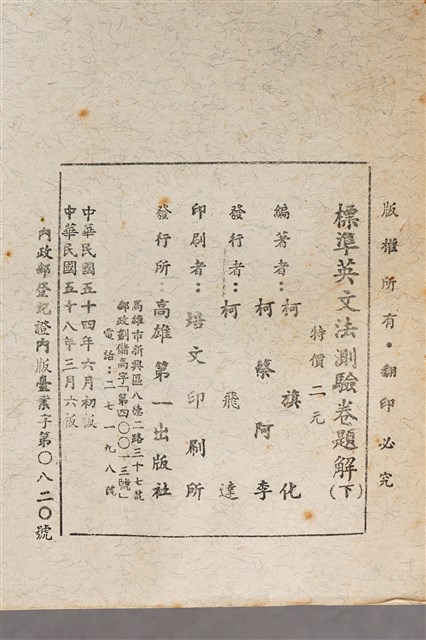 版權所有・翻印必究
標準英文法測驗卷題解(下)
特價 二元
編著者：柯旗化
柯蔡阿李
發行者：柯飛達
印刷者：培文印刷所
發行所：高雄第一出版社
高雄市新興區八德二路三十七號
郵政劃儲高字「第四〇〇一三號」
電話：二七一九八號
中華民國五十四年六月初版
中華民國五十八年三月六版
內政部登記證內版臺業字第〇八二〇號